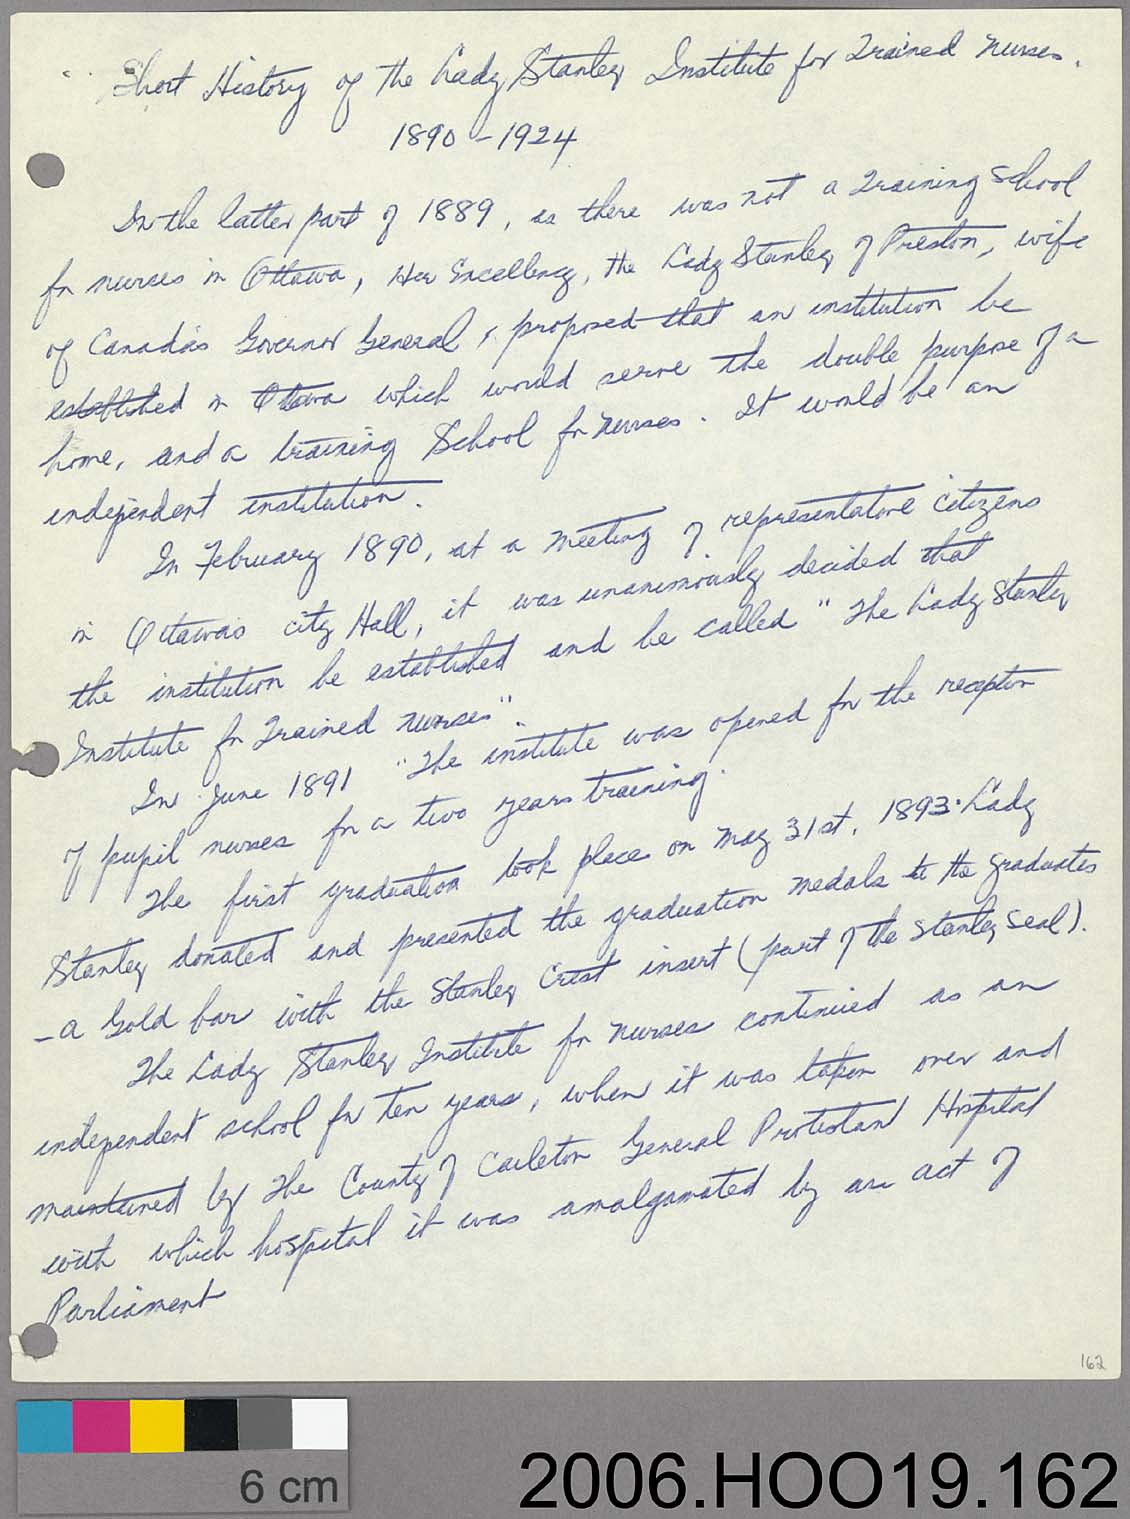 Short History of the Lady Stanley Institute for Trained Nurses.
1890 - 1924
In the latter part of 1889, as there was not a Training School
for nurses in Ottawa, Her Excellency, the Lady Stanley of Preston, wife
of Canada's Governor General, proposed that an institution be
established in Ottawa which would serve the double purpose of a
home, and a training School for nurses. It would be an
independent institution.
In February 1890, at a meeting of representative citizens
in Ottawa's city Hall, it was unanimously decided that
the institution be established and be called "The Lady Stanley
Institute for Trained nurses".
In June 1891 "The institute was opened for the reception
of pupil nurses for a two years training.
The first graduation took place on May 31st, 1893. Lady
Stanley donated and presented the graduation medals to the graduates
- a Gold bar with the Stanley Crest insert (part of the Stanley Seal).
The Lady Stanley Institute for nurses continued as an
independent school for ten years, when it was taken over and
maintained by The County of Carleton General Protestant Hospital
with which hospital it was amalgamated by an act of
Parliament
162
6 cm
2006.HOO19.162